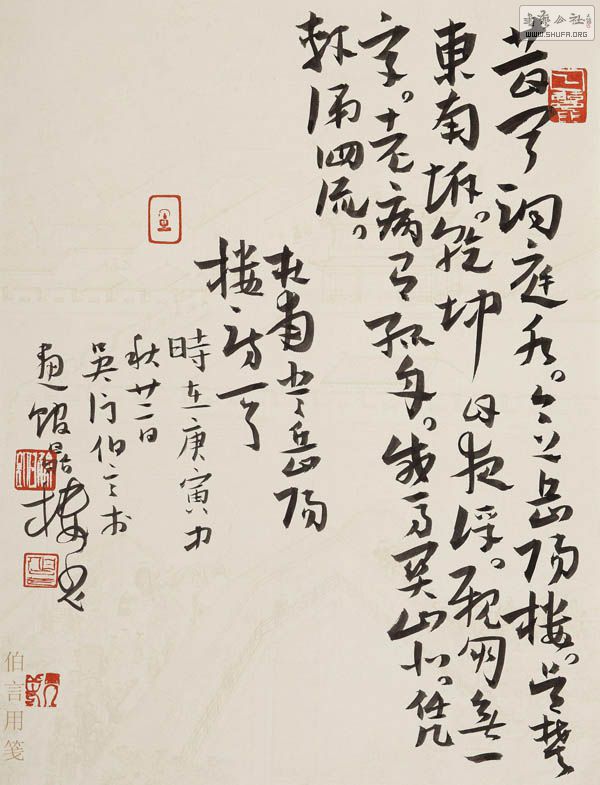 昔聞洞庭水。今上岳陽樓。吳楚
東南坼。乾坤日夜浮。親朋無一
字。老病有孤舟。戎馬關山北。凭
軒涕泗流。
杜甫登岳陽
樓詩一首
時在庚寅中
秋廿二日
吳門伯言於
樓書
伯言用箋
書藝公社
WWW.SHUFA.ORG